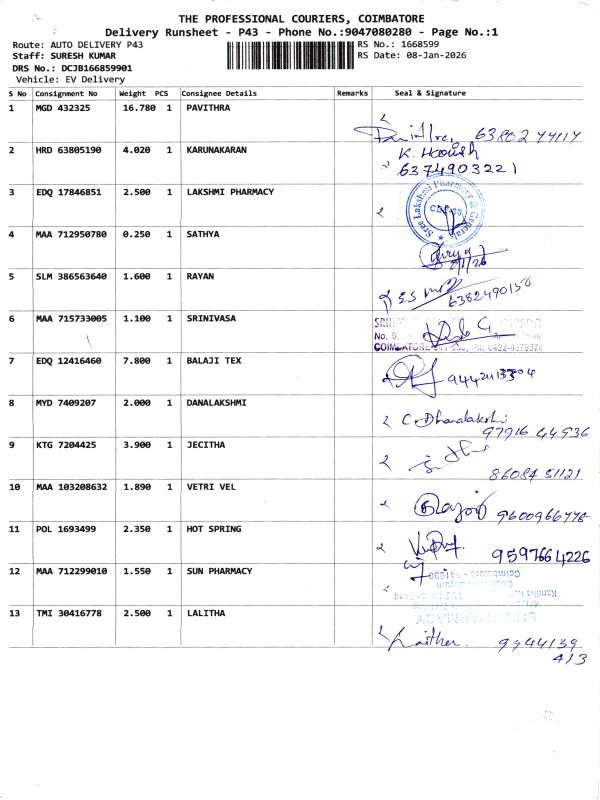 THE PROFESSIONAL COURIERS, COIMBATORE
Delivery Runsheet - P43 - Phone No.:9047080280 - Page No.:1
Route: AUTO DELIVERY P43
RS No.: 1668599
Staff: SURESH KUMAR
RS Date: 08-Jan-2026
DRS No.: DCJB166859901
Vehicle: EV Delivery
S No Consignment No Weight PCS Consignee Details Remarks Seal & Signature
1 MGD 432325 16.780 1 PAVITHRA
2 HRD 63805190 4.020 1 KARUNAKARAN
K. Harish
6374903221
3 EDQ 17846851 2.500 1 LAKSHMI PHARMACY
Sree Lakshmi Pharmacy & Generals
4 MAA 712950780 0.250 1 SATHYA
5 SLM 386563640 1.600 1 RAYAN
6382490150
6 MAA 715733005 1.100 1 SRINIVASA
No. 9
COIMBATORE
0422-4379374
7 EDQ 12416460 7.800 1 BALAJI TEX
8 MYD 7409207 2.000 1 DANALAKSHMI
C. Dhanalakshi
97916 44936
9 KTG 7204425 3.900 1 JECITHA
86084 51121
10 MAA 103208632 1.890 1 VETRI VEL
9600966778
11 POL 1693499 2.350 1 HOT SPRING
9597664226
12 MAA 712299010 1.550 1 SUN PHARMACY
SUN PHARMACY
Coimbatore - 641030
13 TMI 30416778 2.500 1 LALITHA
9344139
413